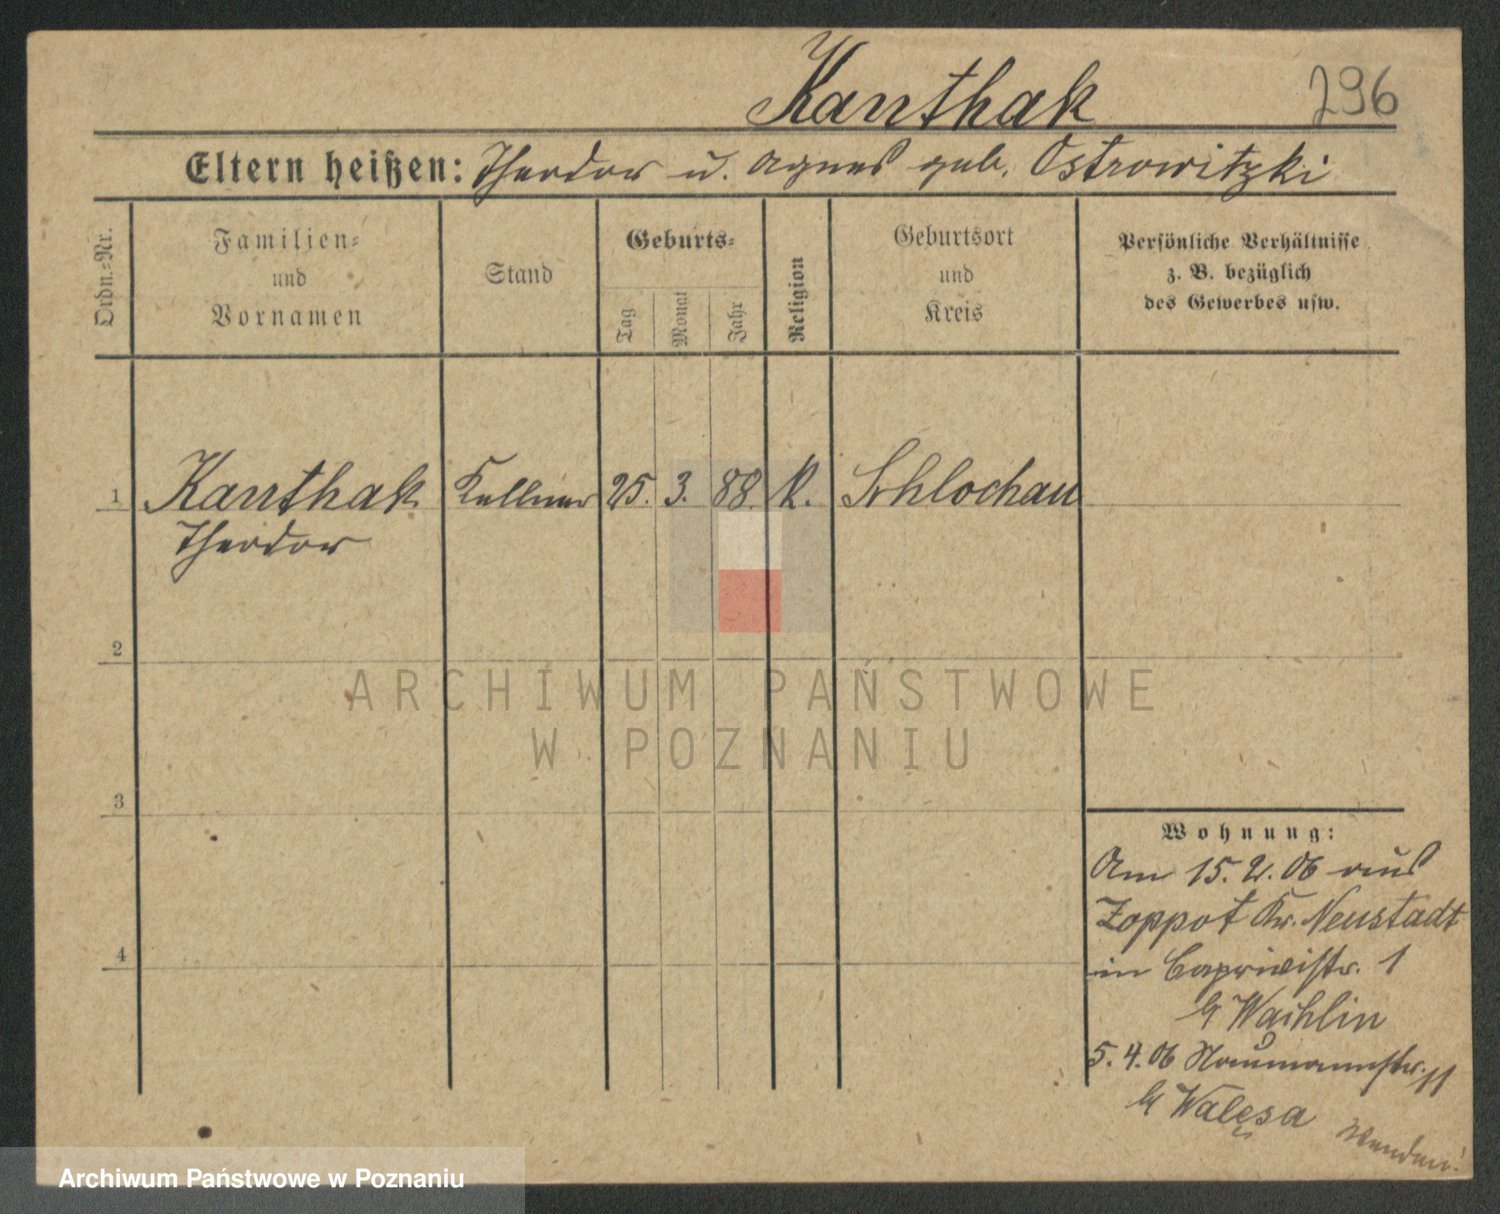 Kanthak 296
Eltern heißen: Theodor u. Agnes geb. Ostrowitzki
Ordn.-Nr.
Familien-
und
Vornamen
Stand
Geburts-
Tag
Monat
Jahr
Religion
Geburtsort
und
Kreis
Persönliche Verhältnisse
z. B. bezüglich
des Gewerbes usw.
1 Kanthak Kellner 25. 3. 88. K. Schlochau
Theodor
2
ARCHIWUM PAŃSTWOWE
W POZNANIU
3
Wohnung:
Am 15. 2. 06 aus
Zoppot Kr. Neustadt
in Caprivistr. 1
4
b/ Waihlin
5. 4. 06 Naumannstr. 11
b/ Walęsa
Wenden!
Archiwum Państwowe w Poznaniu